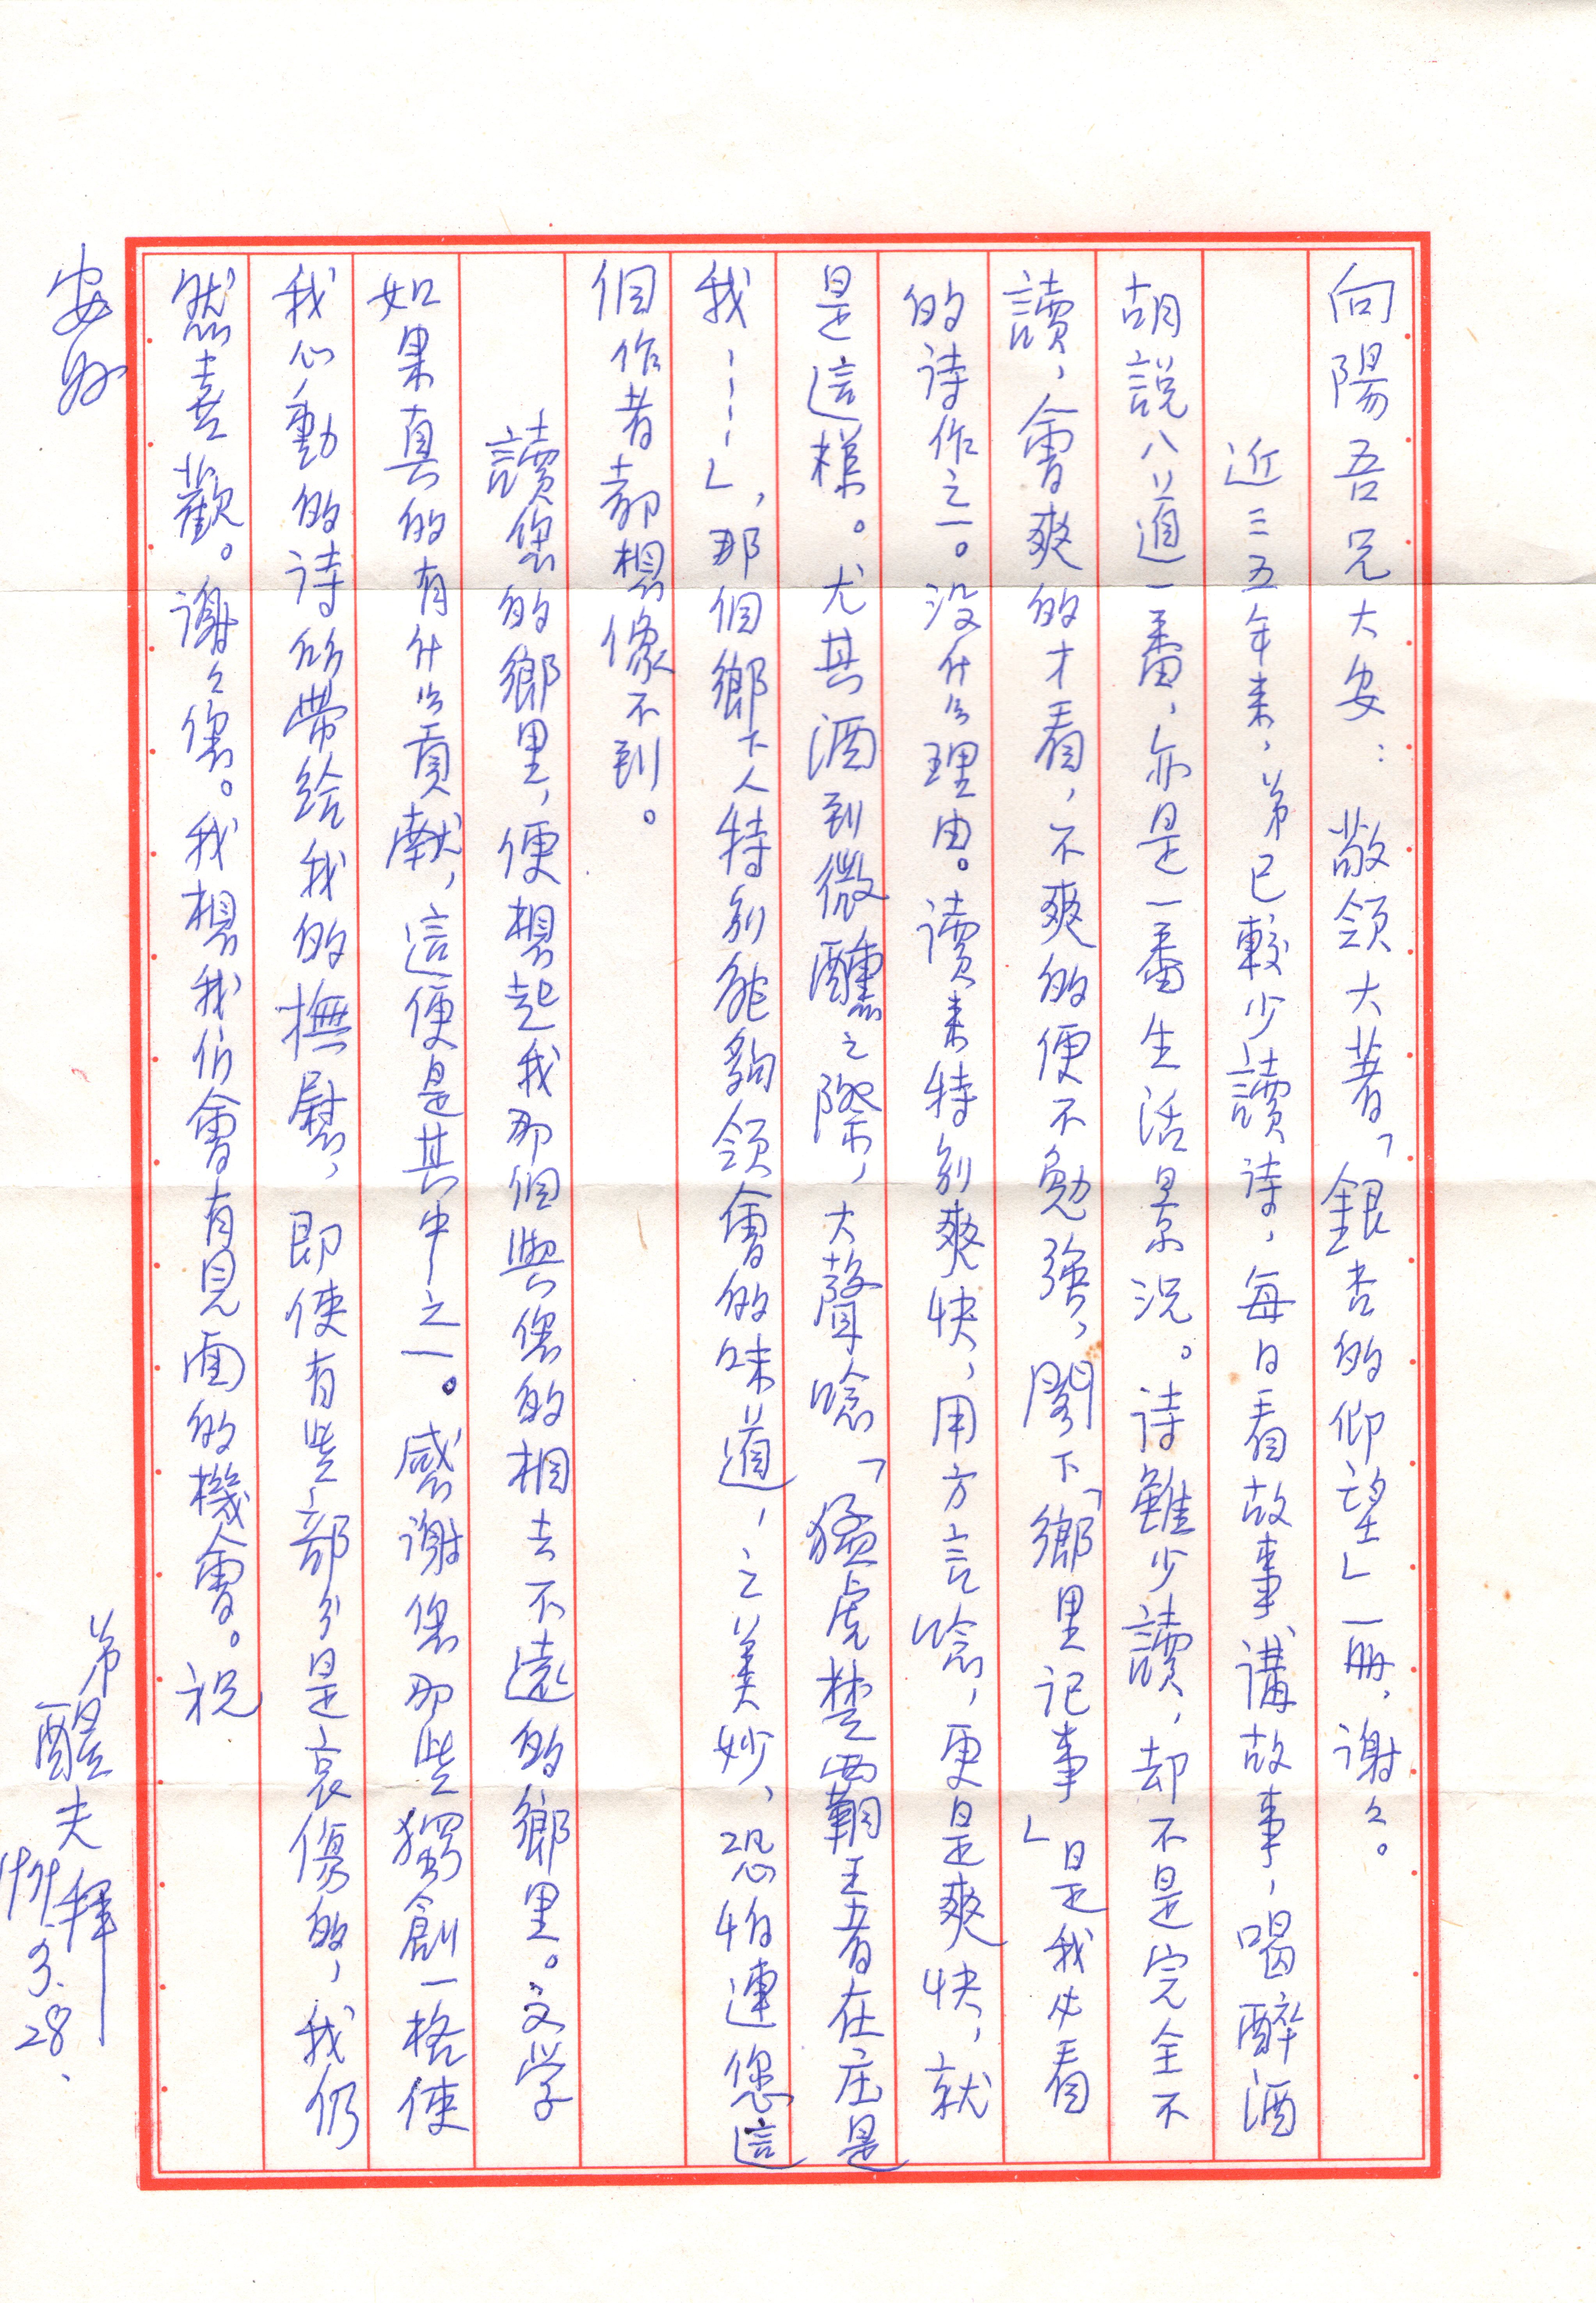 向陽吾兄大安：敬領大著「銀杏的仰望」一冊，謝々。
近三五年來，弟已較少讀詩，每日看故事講故事，喝醉酒
胡說八道一番，亦是一番生活景況。詩雖少讀，却不是完全不
讀，會爽的才看，不爽的便不勉強，閣下「鄉里記事」是我必看
的诗作之一。沒什么理由。读來特别爽快，用方言唸，更是爽快，就
是這樣。尤其酒到微醺之際，大聲唸「猛虎楚西霸王者在庄是
我……」，那個鄉下人特别能夠領會的味道，之美妙，恐怕連您這
個作者都想像不到。
讀您的鄉里，便想起我那個與您的相去不遠的鄉里。文学
如果真的有什么貢獻，這便是其中之一。感謝您那些獨創一格使
我心動的诗所帶給我的撫慰，即使有些部分是哀傷的，我仍
然喜歡。謝々您。我想我们會有見面的機會。祝
安好
弟醒夫拜
3.28.